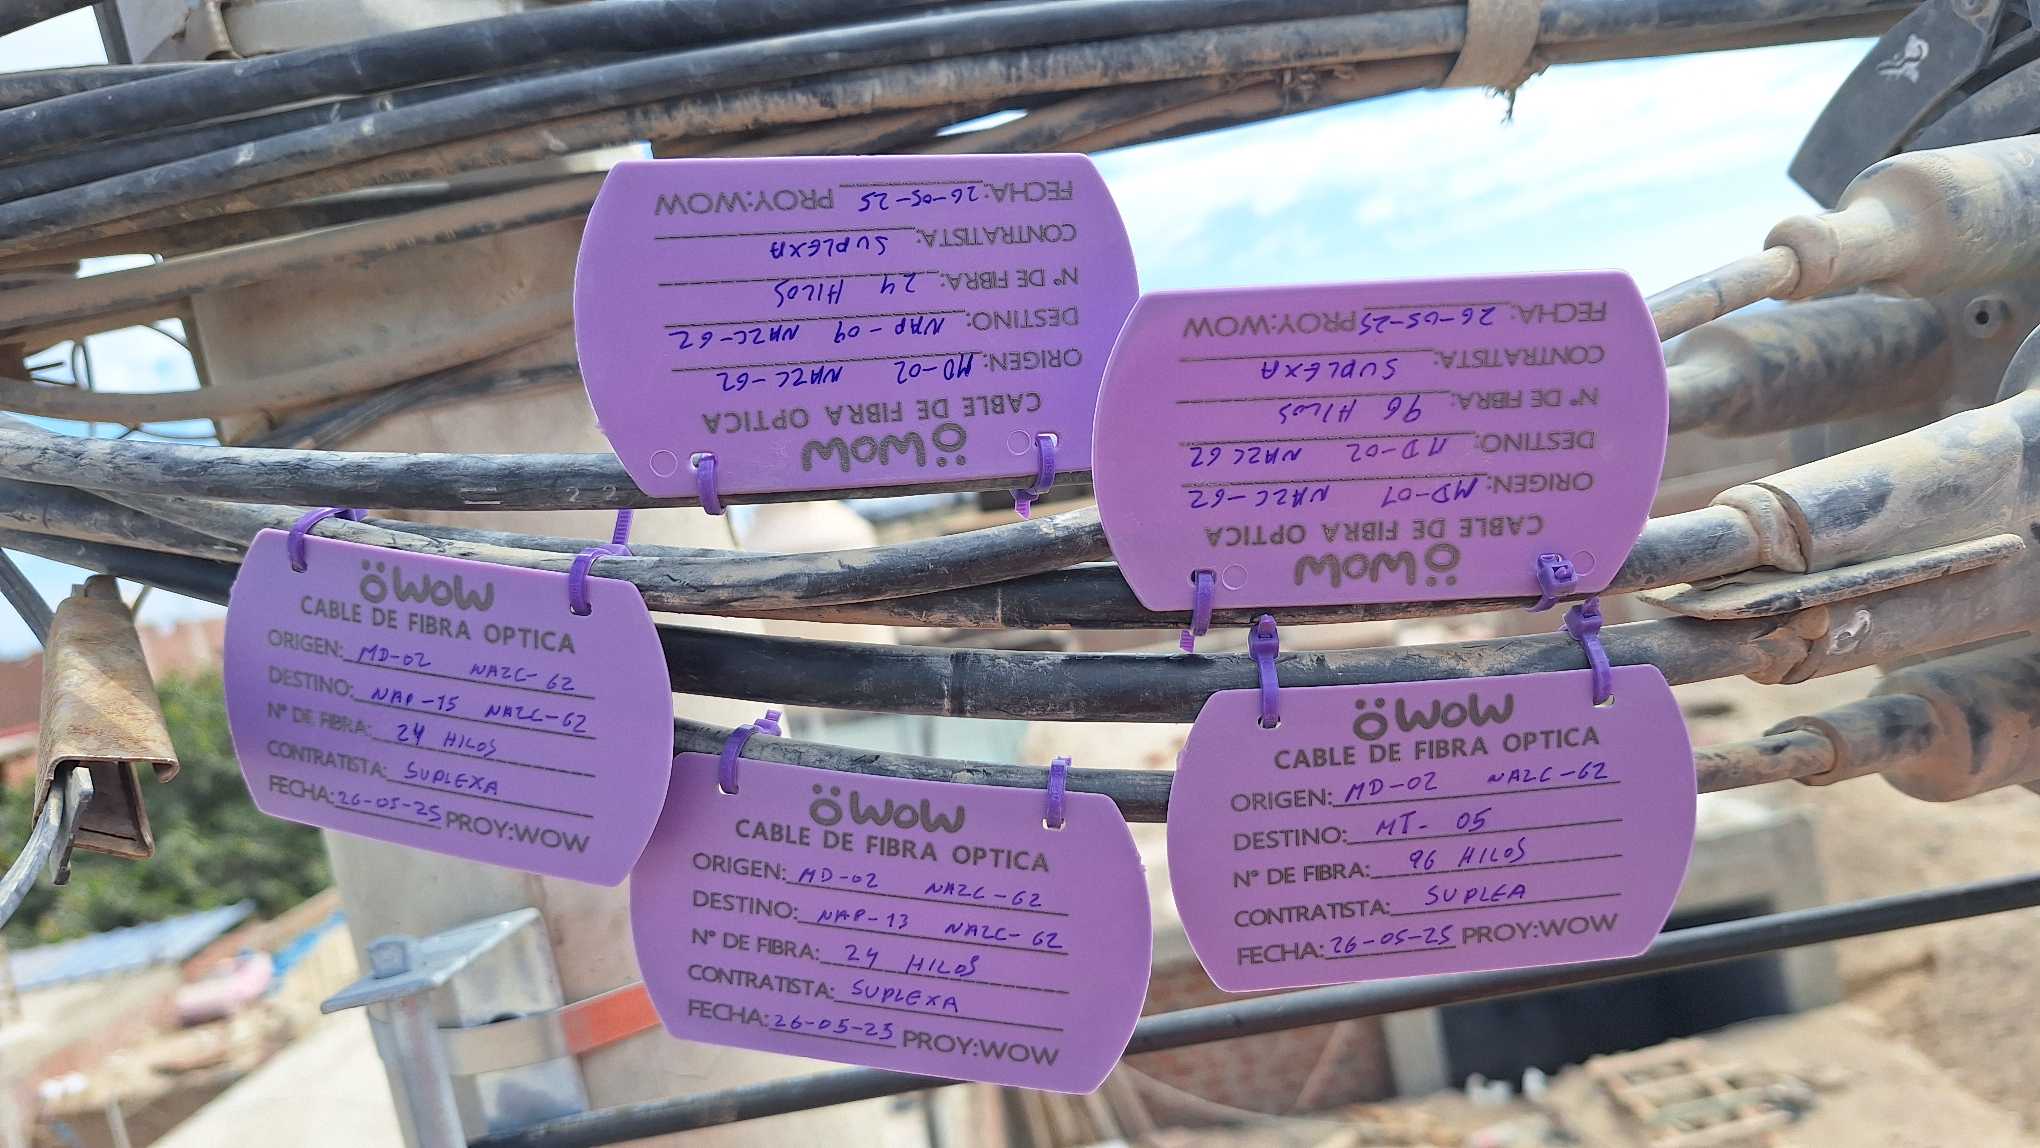 WOW
CABLE DE FIBRA OPTICA
ORIGEN: MD-02 NAZC-62
DESTINO: NAP-09 NAZC-62
N° DE FIBRA: 24 HILOS
CONTRATISTA: SUPLEXA
FECHA: 26-05-25 PROY:WOW
WOW
CABLE DE FIBRA OPTICA
ORIGEN: MD-01 NAZC-62
DESTINO: MD-02 NAZC 62
N° DE FIBRA: 96 HILOS
CONTRATISTA: SUPLEXA
FECHA: 26-05-25 PROY:WOW
WOW
CABLE DE FIBRA OPTICA
ORIGEN: MD-02 NAZC-62
DESTINO: NAP-15 NAZC-62
N° DE FIBRA: 24 HILOS
CONTRATISTA: SUPLEXA
FECHA: 26-05-25 PROY:WOW
WOW
CABLE DE FIBRA OPTICA
ORIGEN: MD-02 NAZC-62
DESTINO: NAP-13 NAZC-62
N° DE FIBRA: 24 HILOS
CONTRATISTA: SUPLEXA
FECHA: 26-05-25 PROY:WOW
WOW
CABLE DE FIBRA OPTICA
ORIGEN: MD-02 NAZC-62
DESTINO: MT-05
N° DE FIBRA: 96 HILOS
CONTRATISTA: SUPLEA
FECHA: 26-05-25 PROY:WOW